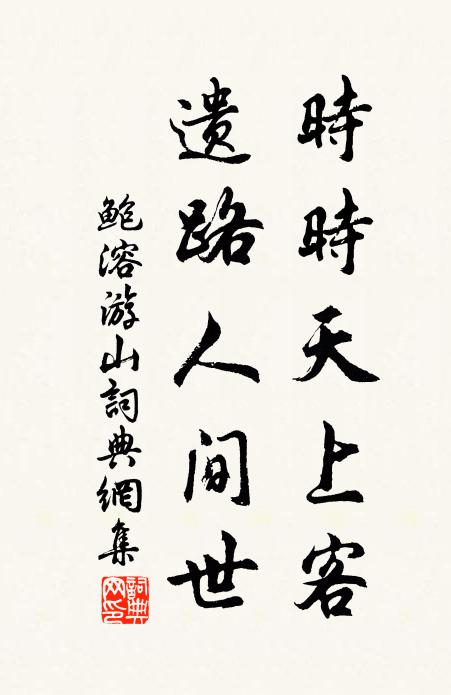 時時天上客
遗路人间世
鲍溶游山詞典網集
詞典网印